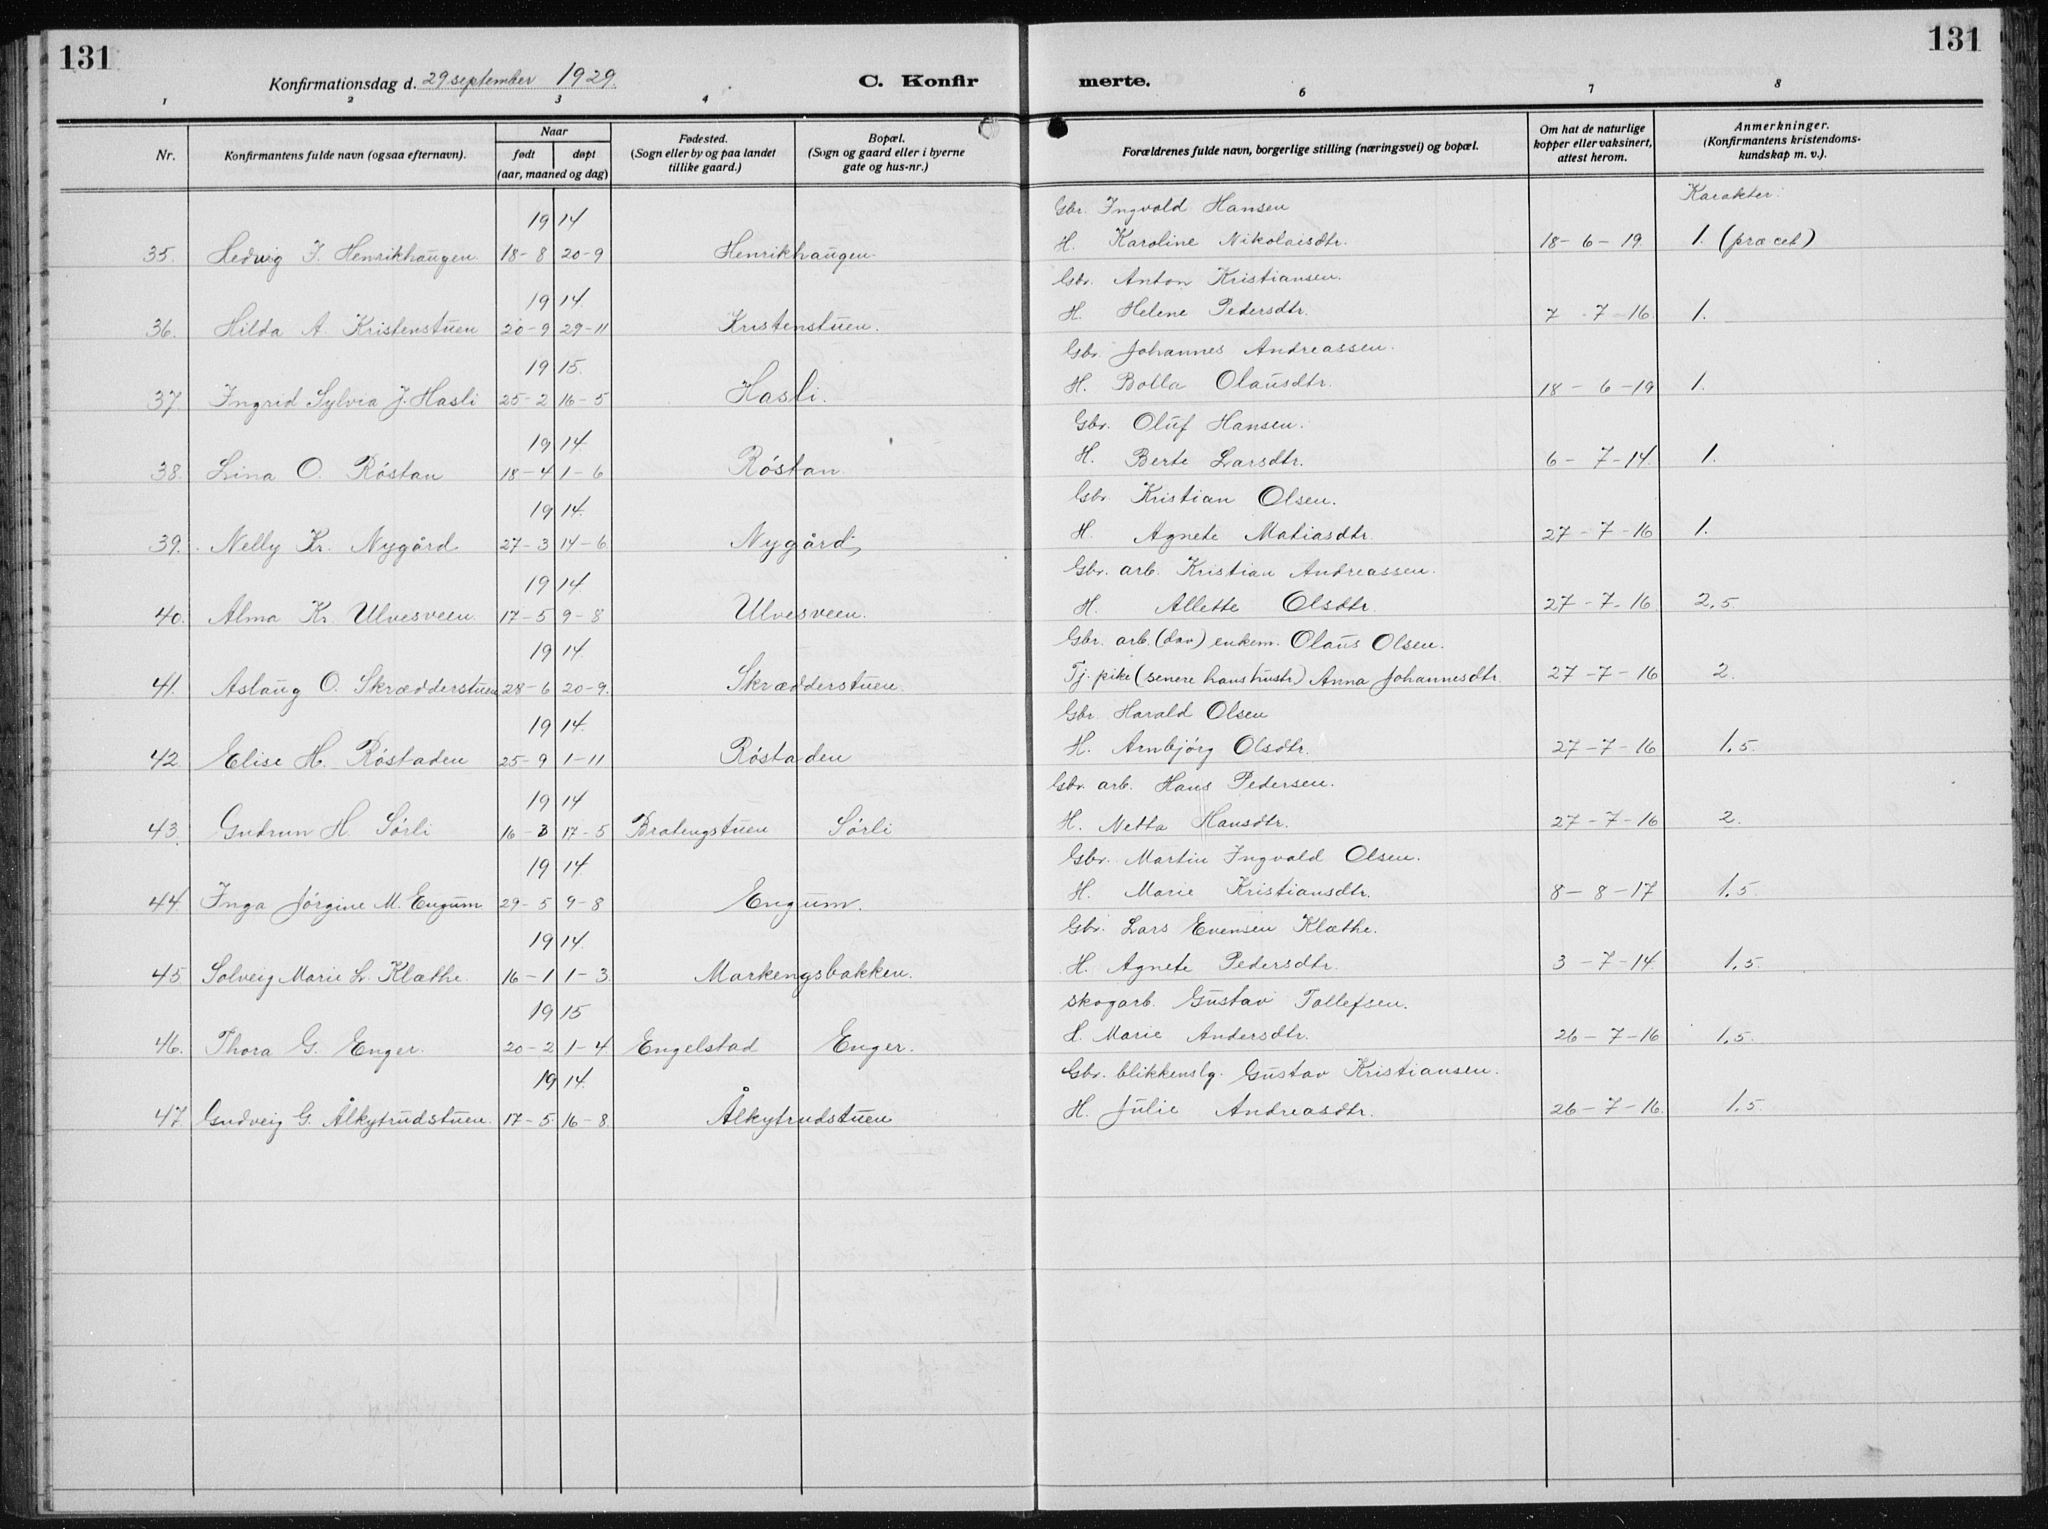 131
131
Konfirmationsdag d. 29 september 1929.
C. Konfirmerte.
1 2 3 4 6 7 8
Nr.
Konfirmantens fulde navn (ogsaa efternavn).
Naar
født døpt
(aar, maaned og dag)
Fødested.
(Sogn eller by og paa landet
tillike gaard.)
Bopæl.
(Sogn og gaard eller i byerne
gate og hus-nr.)
Forældrenes fulde navn, borgerlige stilling (næringsvei) og bopæl.
Om hat de naturlige
kopper eller vaksinert,
attest herom.
Anmerkninger.
(Konfirmantens kristendoms-
kundskap m. v.).
Karakter:
19 14 Gbr. Ingvald Hansen
35. Hedvig I. Henrikhaugen 18-8 20-9 Henrikhaugen H. Karoline Nikolaisdtr. 18-6-19. 1. (præcet)
19 14. Gbr. Anton Kristiansen.
36. Hilda A. Kristenstuen 20-9 29-11 Kristenstuen. H. Helene Pedersdtr. 7-7-16. 1.
19 15. Gbr. Johannes Andreassen.
37 Ingrid Sylvia J. Hasli 25-2 16-5 Hasli. H. Bolla Olausdtr. 18-6-19 1.
19 14. Gbr. Oluf Hansen.
38. Lina O. Röstan 18-4 1-6 Röstan H. Berte Larsdtr. 6-7-14. 1.
19 14. Gbr. Kristian Olsen.
39. Nelly Kr. Nygård 27-3 14-6 Nygård H. Agnete Matiasdtr. 27-7-16 1.
19 14. Gbr. arb. Kristian Andreassen.
40. Alma Kr. Ulvesveen. 17-5 9-8 Ulvesveen. H. Allette Olsdtr. 27-7-16 2,5.
19 14. Gbr. arb. (dav) enkem. Olaus Olsen.
41. Aslaug O. Skrædderstuen 28-6 20-9. Skrædderstuen. Tj. pike (senere hans hustr) Anna Johannesdtr. 27-7-16 2.
19 14. Gbr. Harald Olsen
42. Elise H. Röstaden 25-9 1-11 Röstaden H. Arnbjörg Olsdtr. 27-7-16 1,5.
19 14 Gbr. arb. Hans Pedersen.
43. Gudrun H. Sörli 16-3 17-5 Bratengstuen Sörli H. Netta Hansdtr. 27-7-16 2.
19 14 Gbr. Martin Ingvald Olsen.
44. Inga Jörgine M. Engum 29-5 9-8 Engum. H. Marie Kristiansdtr. 8-8-17 1,5.
19 14. Gbr. Lars Evensen Klæthe.
45. Solveig Marie L. Klæthe. 16-1 1-3. Markengsbakken. H. Agnete Pedersdtr. 3-7-14. 1,5.
19 15 Skogarb. Gustav Tollefsen.
46. Thora G. Enger. 20-2 1-4 Engelstad Enger. H. Marie Andersdtr. 26-7-16 1,5.
19 14. Gbr. blikkenslg. Gustav Kristiansen.
47. Gudveig G. Ålkytrudstuen. 17-5 16-8. Ålkytrudstuen H. Julie Andreasdtr. 26-7-16. 1,5.